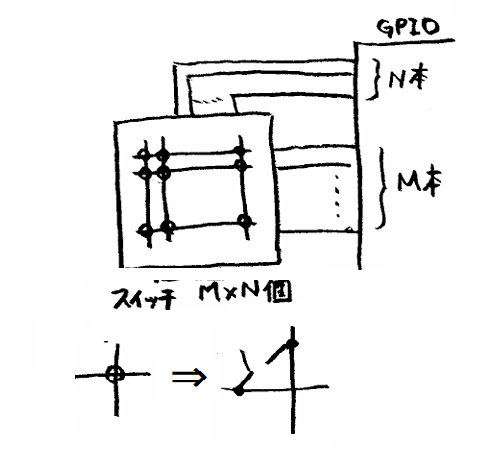 GPIO
N本
M本
スイッチ M×N個